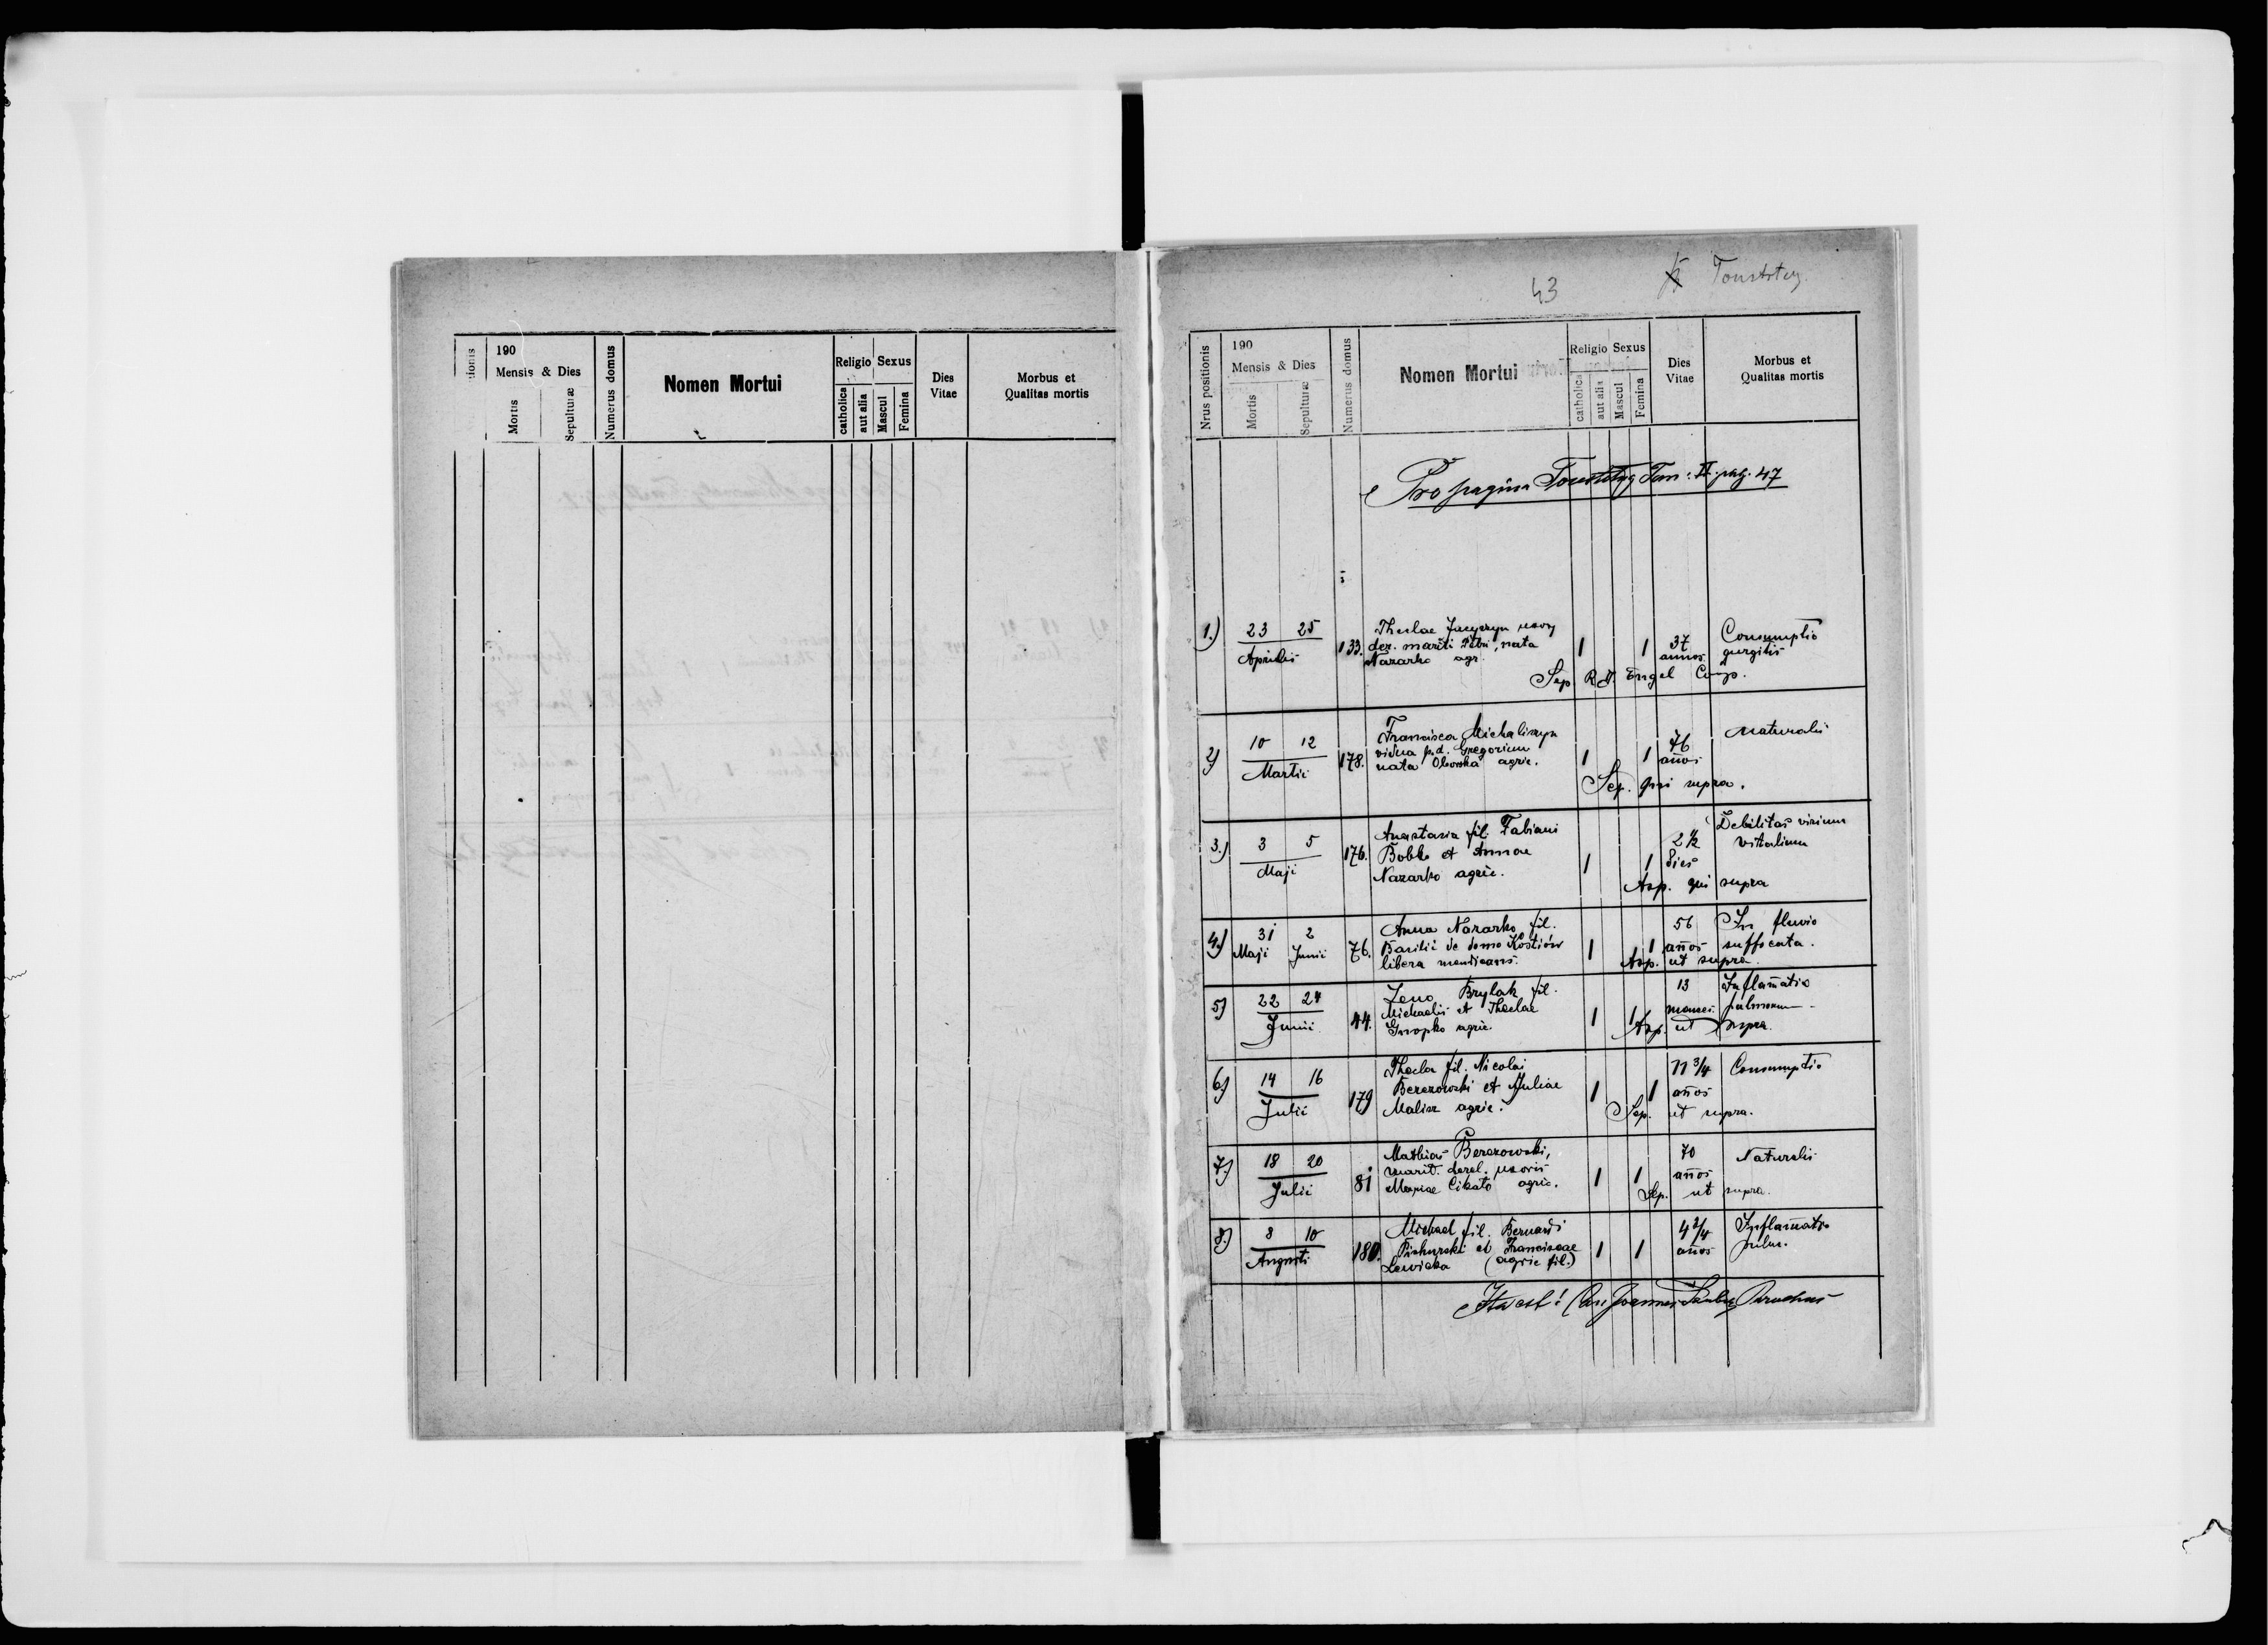 190
Mensis & Dies
Mortis
Sepulturæ
Numerus domus
Nomen Mortui
Religio Sexus
catholica
aut alia
Mascul
Femina
Dies
Vitae
Morbus et
Qualitas mortis
43
Toustoług
Nrus positionis
190
Mensis & Dies
Mortis
Sepulturæ
Numerus domus
Nomen Mortui
Religio Sexus
catholica
aut alia
Mascul
Femina
Dies
Vitae
Morbus et
Qualitas mortis
Pro pagina Tom: II. pag. 47
1.) 23 25 Aprilis 133.
Theclae uxor
der. mariti Petri, nata
Nazarko agr.
1 1 37 annos
Consumptio
gurgitis
Sep. R. D. Engel Coop.
2) 10 12 Martii 178.
Francisca Michaliszyn
vidua p.d. Gregorium
nata agric.
1 1 76 años
Naturalis
Sep. qui supra.
3.) 3 5 Maji 176.
Anastasia fil. Fabiani
Bobko et Annae
Nazarko agric.
1 1 2 1/2 dies
Debilitas virium
vitalium
Asp. qui supra
4.) 31 Maji 2 Junii 76.
Anna Nazarko fil.
Basilii de domo Kostiów
libera mendicans.
1 1 56 años
In fluvio
suffocata.
Asp. ut supra.
5) 22 24 Junii 44.
Zeno Brylak fil.
Michaelis et Theclae
Gnopko agric.
1 1 13 menses
Inflam̄atio
pulmonum
Asp. ut supra.
6) 14 16 Julii 179
Thecla fil. Nicolai
Berezowski et Juliae
Malisz agric.
1 1 11 3/4 años
Consumptio
Sep. ut supra.
7.) 18 20 Julii 81
Mathias Berezowski,
marit. derel. uxoris
Mariae Cikato agric.
1 1 70 años
Naturalis
Sep. ut supra.
8.) 8 10 Augusti 180.
Michael fil. Bernardi
Pishurski et Franciscae
Lewicka (agric fil.)
1 1 4 3/4 años
Inflam̄atio
pulm.
Ita est! Joannes Parochus